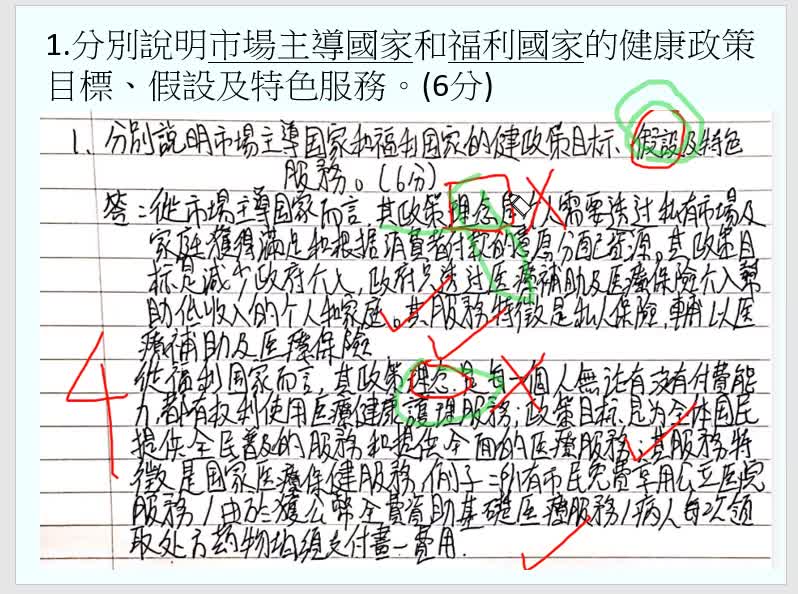 1.分別說明市場主導國家和福利國家的健康政策
目標、假設及特色服務。(6分)
1、分別說明市場主導国家和福利国家的健政策目标、假設及特色
服務。(6分)
答：從市場主導国家而言,其政策理念是个人需要透过私有市場及
家庭獲得滿足和根據消費者付款的意愿分配資源。其政策目
标是減少政府介入,政府只透过医療補助及医療保險介入幫
助低收入的个人和家庭。其服務特徵是私人保險,輔以医
療補助及医療保險
從福利国家而言,其政策理念是每一個人無論有沒有付費能
力,都有权利使用医療健康護理服務;政策目标是为全体国民
提供全民普及的服務和提供全面的医療服務;其服務特
徵是国家医療保健服務,例子:所有市民免費享用公立医院
服務/由於獲公帑全費資助基礎医療服務/病人每次領
取处方药物均須支付畫一費用.
4